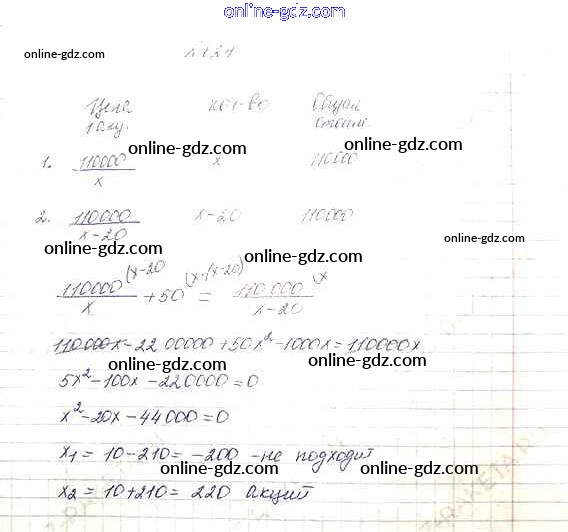 online-gdz.com
online-gdz.com
online-gdz.com
Цена кол-во Общая
1 аку. стоим.
online-gdz.com
1. 110000/x x 110000
online-gdz.com
2. 110000/x-20 x-20 110000
online-gdz.com
online-gdz.com
online-gdz.com
110000/x (x-20 + 50 (x·(x-20) = 110 000/x-20 (x
110000x-22 00000+50x²-1000x=110000x
online-gdz.com
online-gdz.com
5x²-100x-220000=0
x²-20x-44000=0
online-gdz.com
online-gdz.com
x₁ = 10-210= -200 -не подходит
online-gdz.com
online-gdz.com
x₂ = 10+210= 220 акций